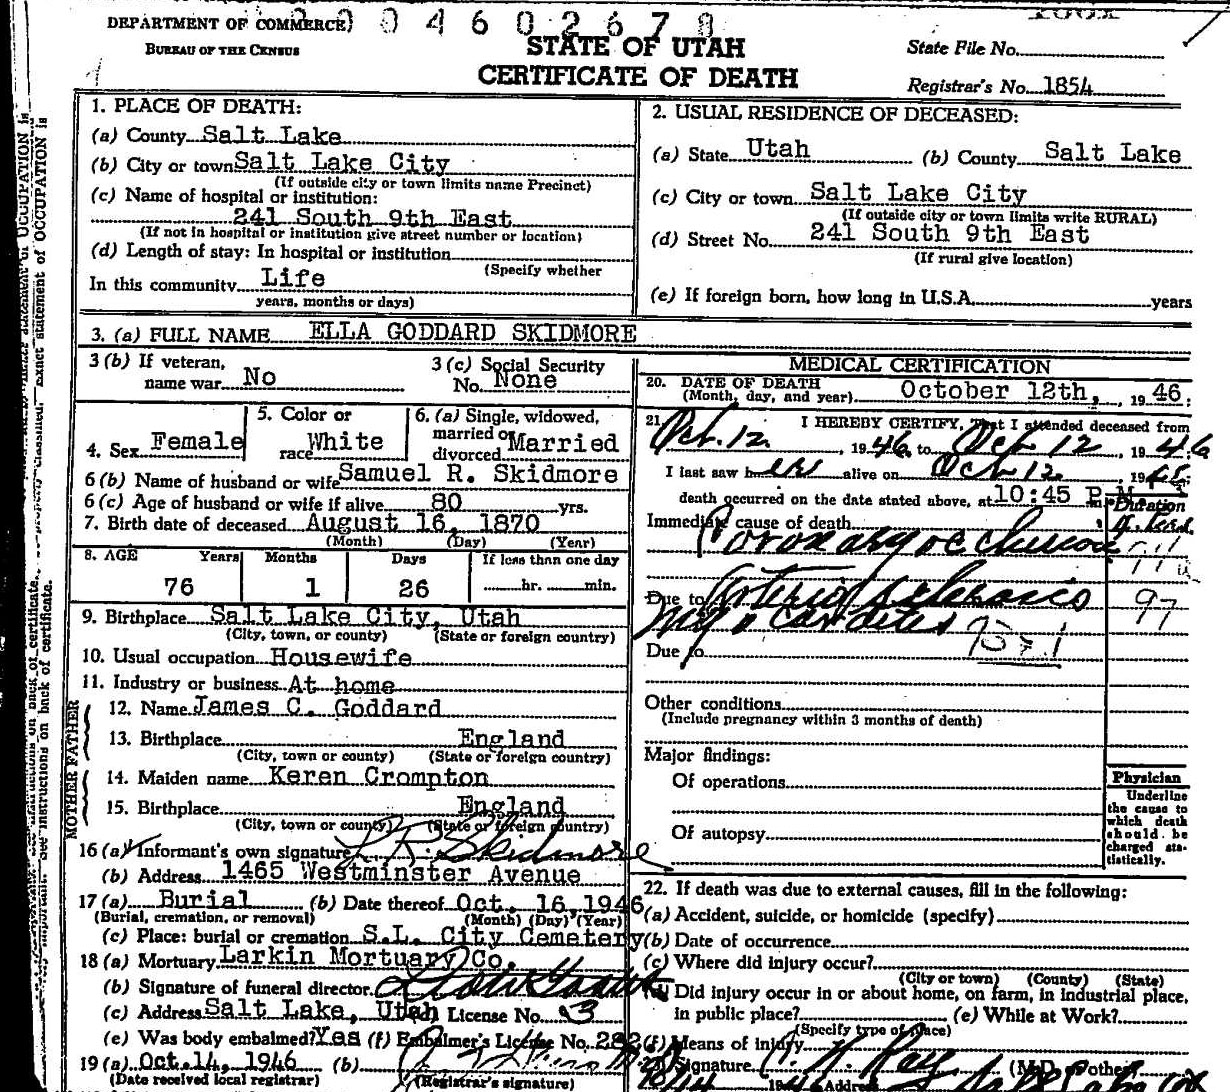 DEPARTMENT OF COMMERCE
BUREAU OF THE CENSUS
004602678
STATE OF UTAH
CERTIFICATE OF DEATH
State File No.
Registrar's No. 1854
1. PLACE OF DEATH:
(a) County Salt Lake
(b) City or town Salt Lake City
(If outside city or town limits name Precinct)
(c) Name of hospital or institution:
241 South 9th East
(If not in hospital or institution give street number or location)
(d) Length of stay: In hospital or institution
(Specify whether
In this community Life
years, months or days)
2. USUAL RESIDENCE OF DECEASED:
(a) State Utah (b) County Salt Lake
(c) City or town Salt Lake City
(If outside city or town limits write RURAL)
(d) Street No. 241 South 9th East
(If rural give location)
(e) If foreign born, how long in U.S.A. years
3. (a) FULL NAME ELLA GODDARD SKIDMORE
3 (b) If veteran,
name war No
3 (c) Social Security
No. None
4. Sex Female
5. Color or
race White
6. (a) Single, widowed,
married or
divorced Married
6 (b) Name of husband or wife Samuel R. Skidmore
6 (c) Age of husband or wife if alive 80 yrs.
7. Birth date of deceased August 16, 1870
(Month) (Day) (Year)
8. AGE Years Months Days If less than one day
76 1 26 hr. min.
9. Birthplace Salt Lake City, Utah
(City, town, or county) (State or foreign country)
10. Usual occupation Housewife
11. Industry or business At home
FATHER
12. Name James C. Goddard
13. Birthplace England
(City, town or county) (State or foreign country)
MOTHER
14. Maiden name Keren Crompton
15. Birthplace England
(City, town or county) (State or foreign country)
16 (a) Informant's own signature Skidmore
(b) Address 1465 Westminster Avenue
17 (a) Burial (b) Date thereof Oct. 16, 1946
(Burial, cremation, or removal) (Month) (Day) (Year)
(c) Place: burial or cremation S.L. City Cemetery
18 (a) Mortuary Larkin Mortuary Co.
(b) Signature of funeral director
(c) Address Salt Lake, Utah (d) License No. 3
(e) Was body embalmed? Yes (f) Embalmer's License No. 282
19 (a) Oct. 14, 1946 (b)
(Date received local registrar) (Registrar's signature)
MEDICAL CERTIFICATION
20. DATE OF DEATH October 12th, , 19 46.
(Month, day, and year)
21. I HEREBY CERTIFY, That I attended deceased from
Oct. 12 1946, to Oct 12 1946
I last saw her alive on Oct 12 19
death occurred on the date stated above, at 10:45 P.M.
Duration
Immediate cause of death
Coronary occlusion
Due to Arterio sclerosis 97
Myocarditis
Due to
Other conditions
(Include pregnancy within 3 months of death)
Major findings:
Of operations
Of autopsy
Physician
Underline
the cause to
which death
should be
charged sta-
tistically.
22. If death was due to external causes, fill in the following:
(a) Accident, suicide, or homicide (specify)
(b) Date of occurrence
(c) Where did injury occur?
(City or town) (County) (State)
(d) Did injury occur in or about home, on farm, in industrial place,
in public place? (e) While at Work?
(Specify type of place)
(f) Means of injury
Signature (M.D. other)
Address